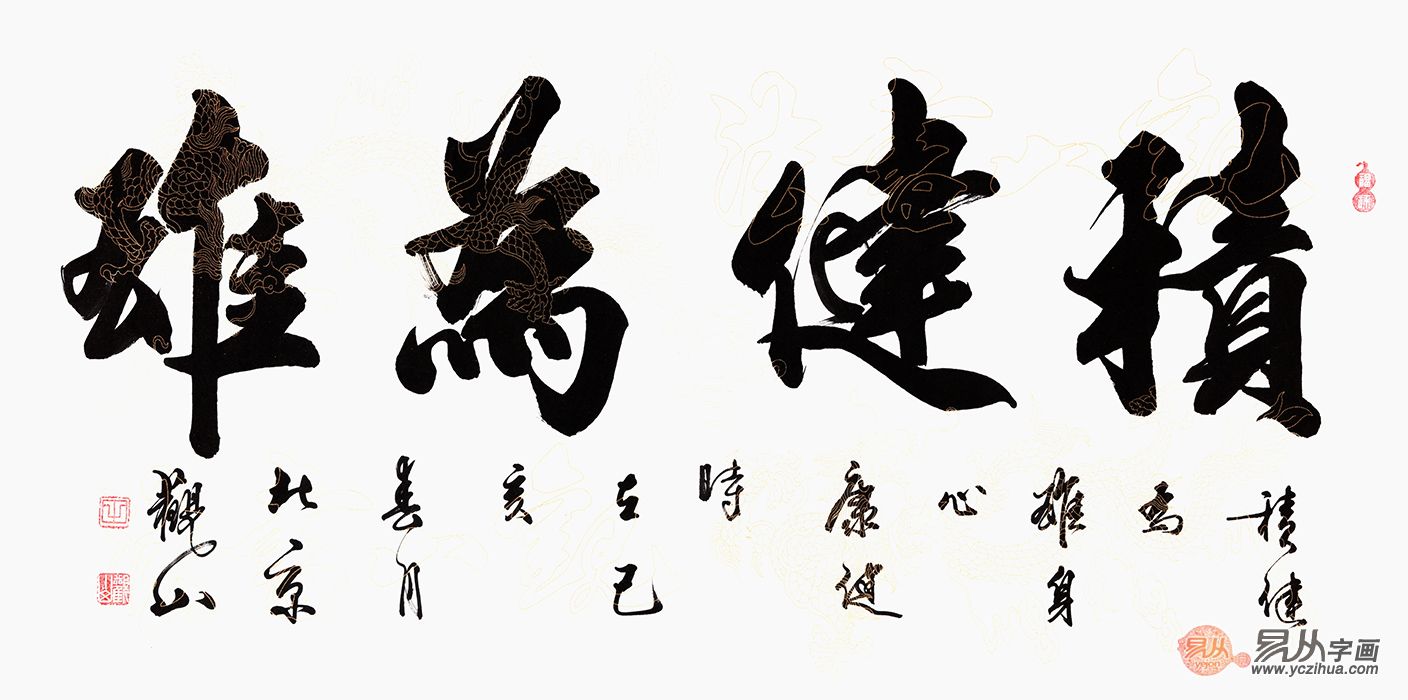 積健為雄
積健
為
雄身
心
康健
時
在己
亥
春月
北京
觀山
易从
yejon
易从字画
www.yczihua.com